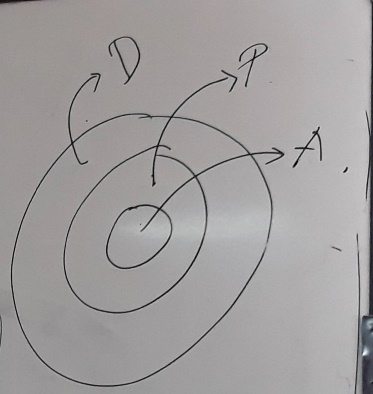 D
P
A